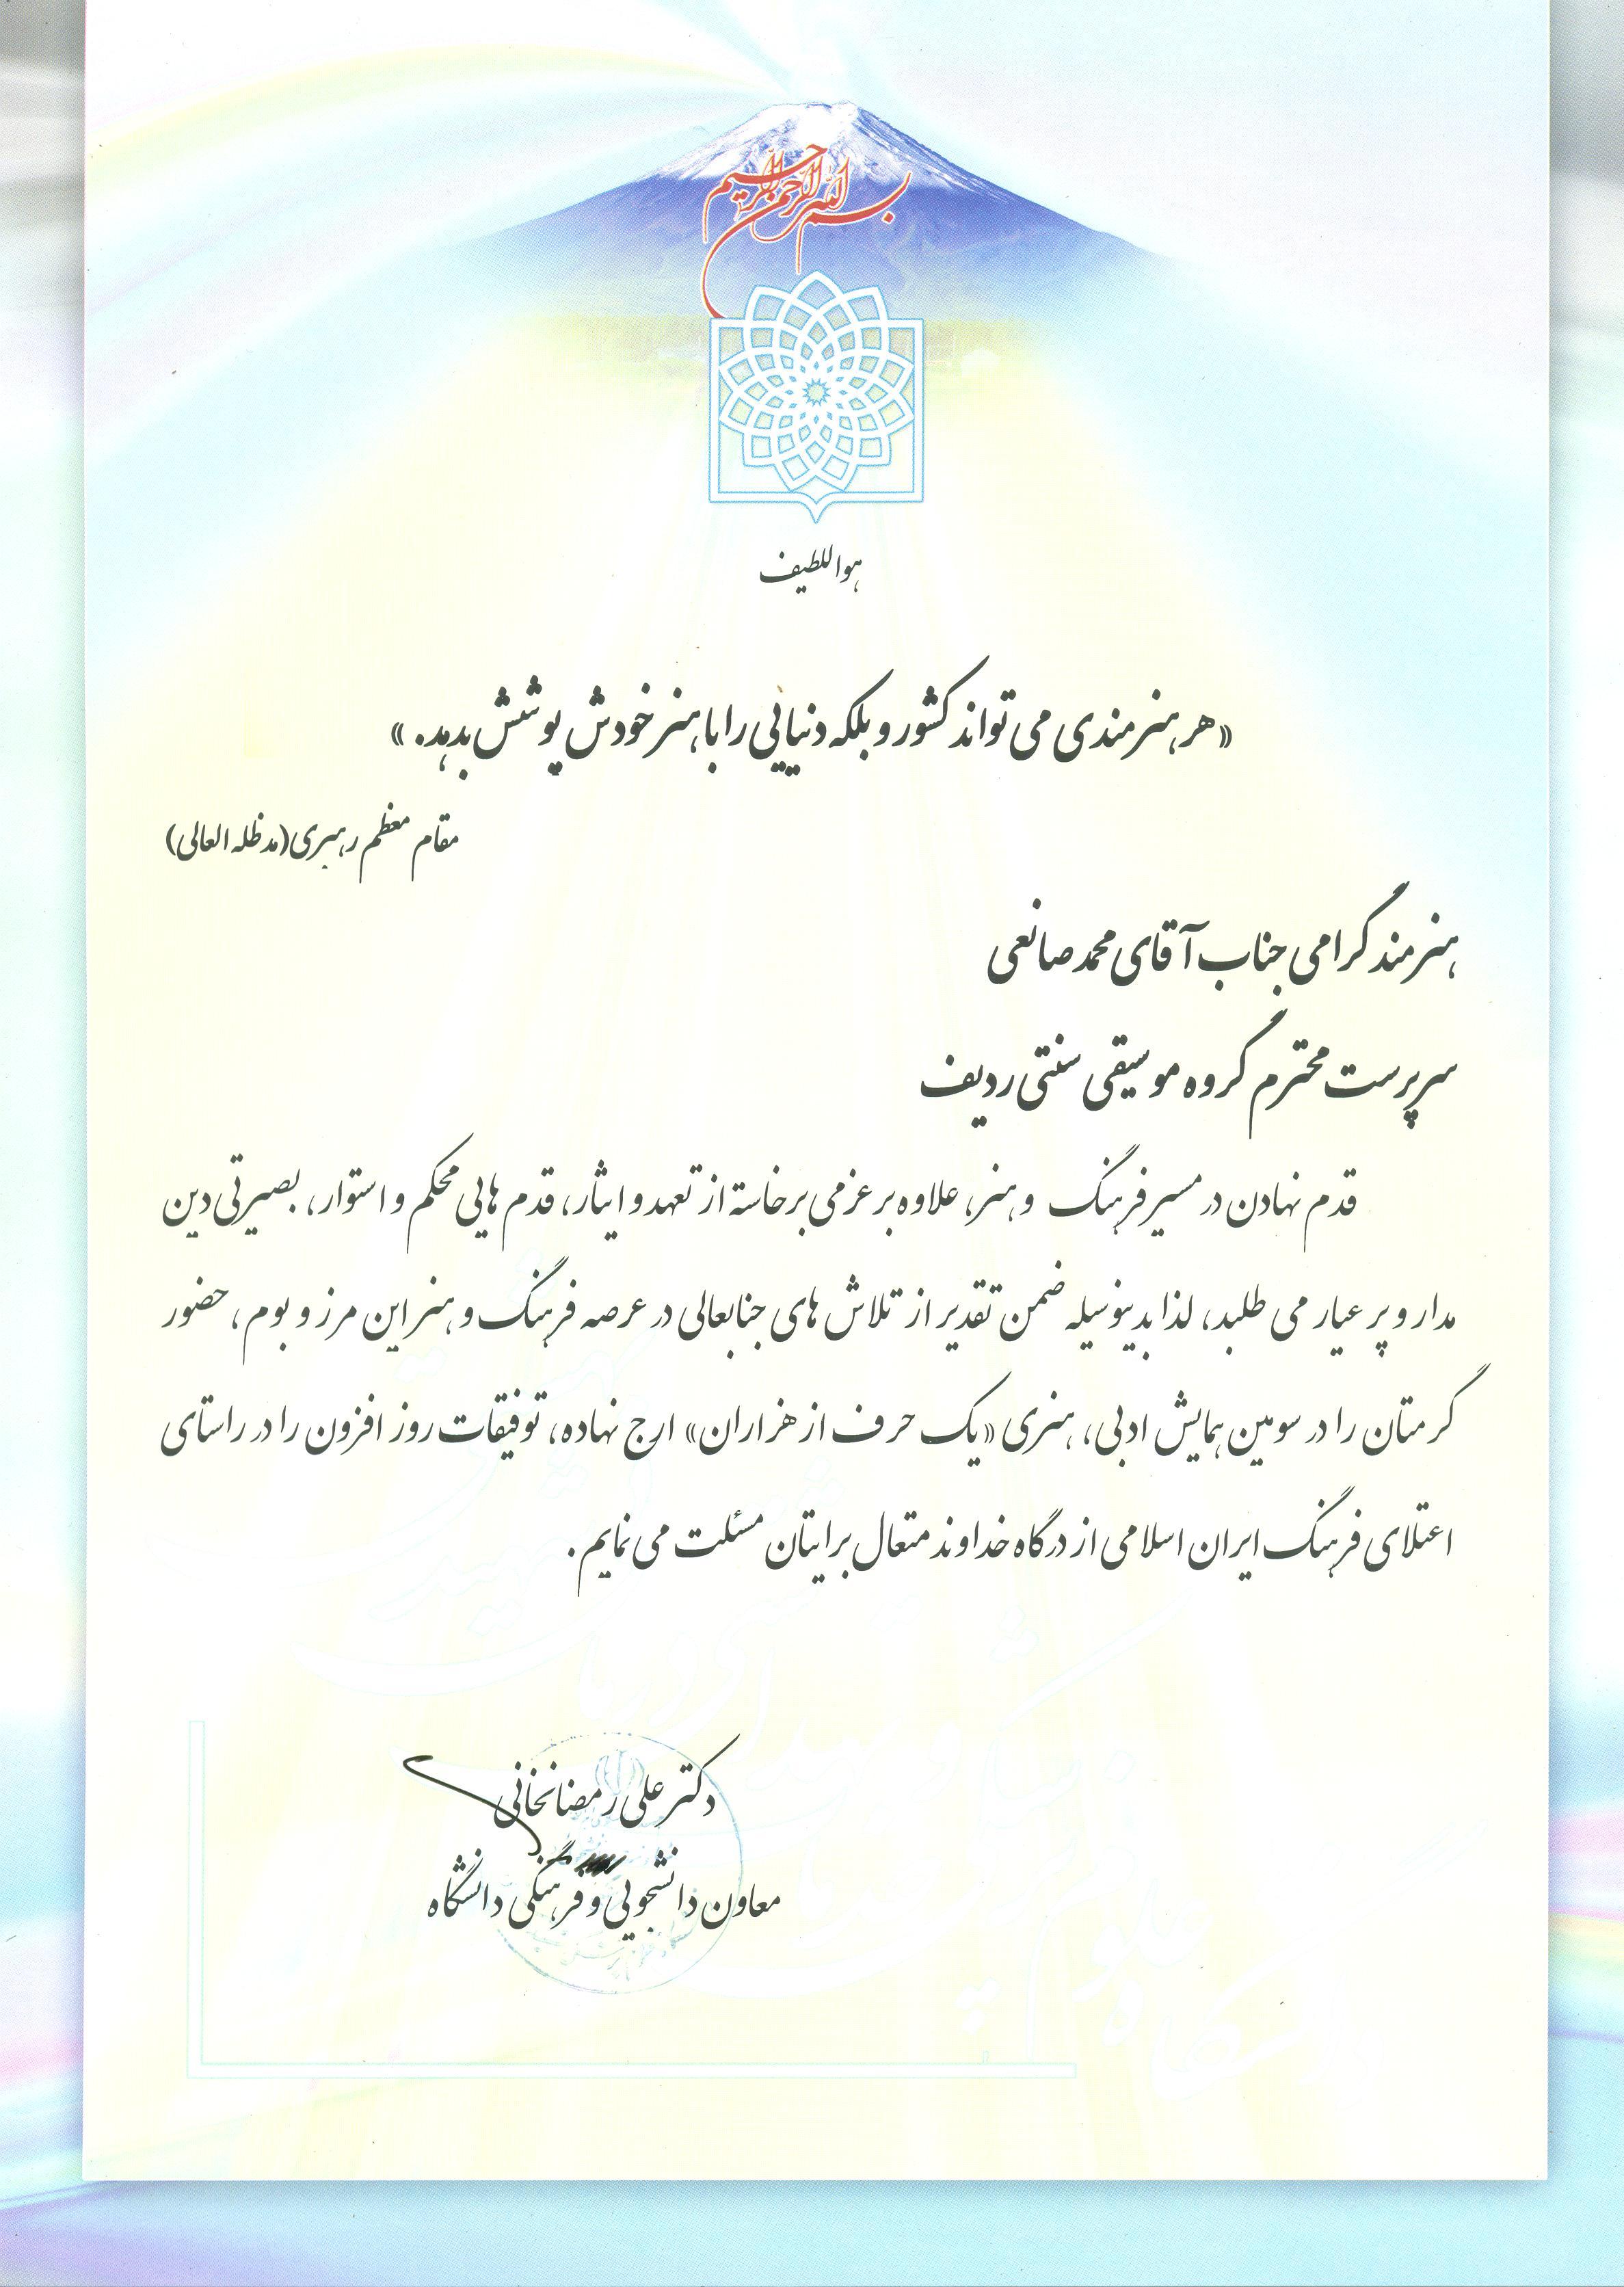 بسم الله الرحمن الرحیم
هواللطیف
«هر هنرمندی می تواند کشور و بلکه دنیایی را با هنر خودش پوشش بدهد.»
مقام معظم رهبری(مدظله العالی)
هنرمند گرامی جناب آقای محمد صانعی
سرپرست محترم گروه موسیقی سنتی ردیف
قدم نهادن در مسیر فرهنگ و هنر، علاوه بر عزمی برخاسته از تعهد و ایثار، قدم هایی محکم و استوار، بصیرتی دین
مدار و پر عیار می طلبد، لذا بدینوسیله ضمن تقدیر از تلاش های جنابعالی در عرصه فرهنگ و هنر این مرز و بوم، حضور
گرمتان را در سومین همایش ادبی، هنری «یک حرف از هزاران» ارج نهاده، توفیقات روز افزون را در راستای
اعتلای فرهنگ ایران اسلامی از درگاه خداوند متعال برایتان مسئلت می نمایم.
دکتر علی رمضانخانی
معاون دانشجویی و فرهنگی دانشگاه